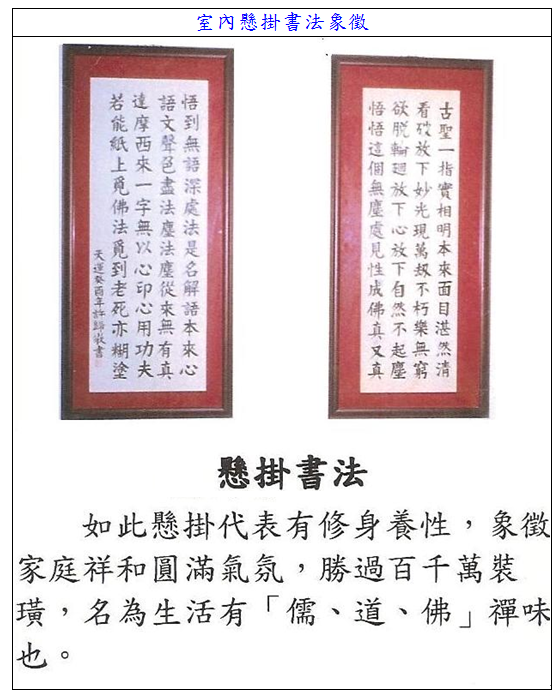 室內懸掛書法象徵
古聖一指實相明本來面目湛然清
看破放下妙光現萬刼不朽樂無窮
欲脫輪廻放下心放下自然不起塵
悟悟這個無塵處見性成佛真又真
悟到無語深處法是名解語本來心
語文聲色盡法塵法塵從來無有真
達摩西來一字無以心印心用功夫
若能紙上覓佛法覓到老死亦糊塗
天運癸酉年許歸敬書
懸掛書法
如此懸掛代表有修身養性，象徵
家庭祥和圓滿氣氛，勝過百千萬裝
璜，名為生活有「儒、道、佛」禪味
也。